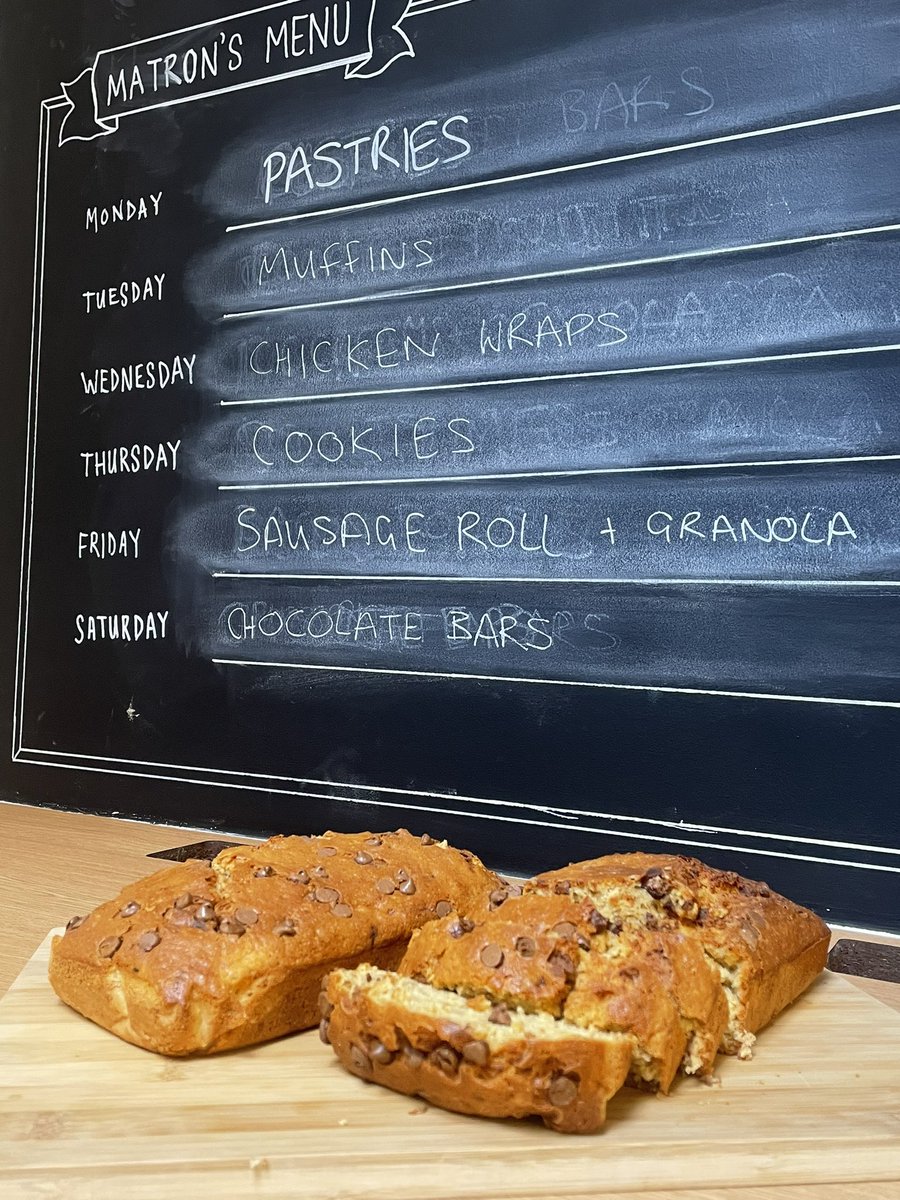 MATRON'S MENU
BARS
MONDAY PASTRIES
TUESDAY MUFFINS
WEDNESDAY CHICKEN WRAPS
THURSDAY COOKIES
FRIDAY SAUSAGE ROLL + GRANOLA
SATURDAY CHOCOLATE BARS